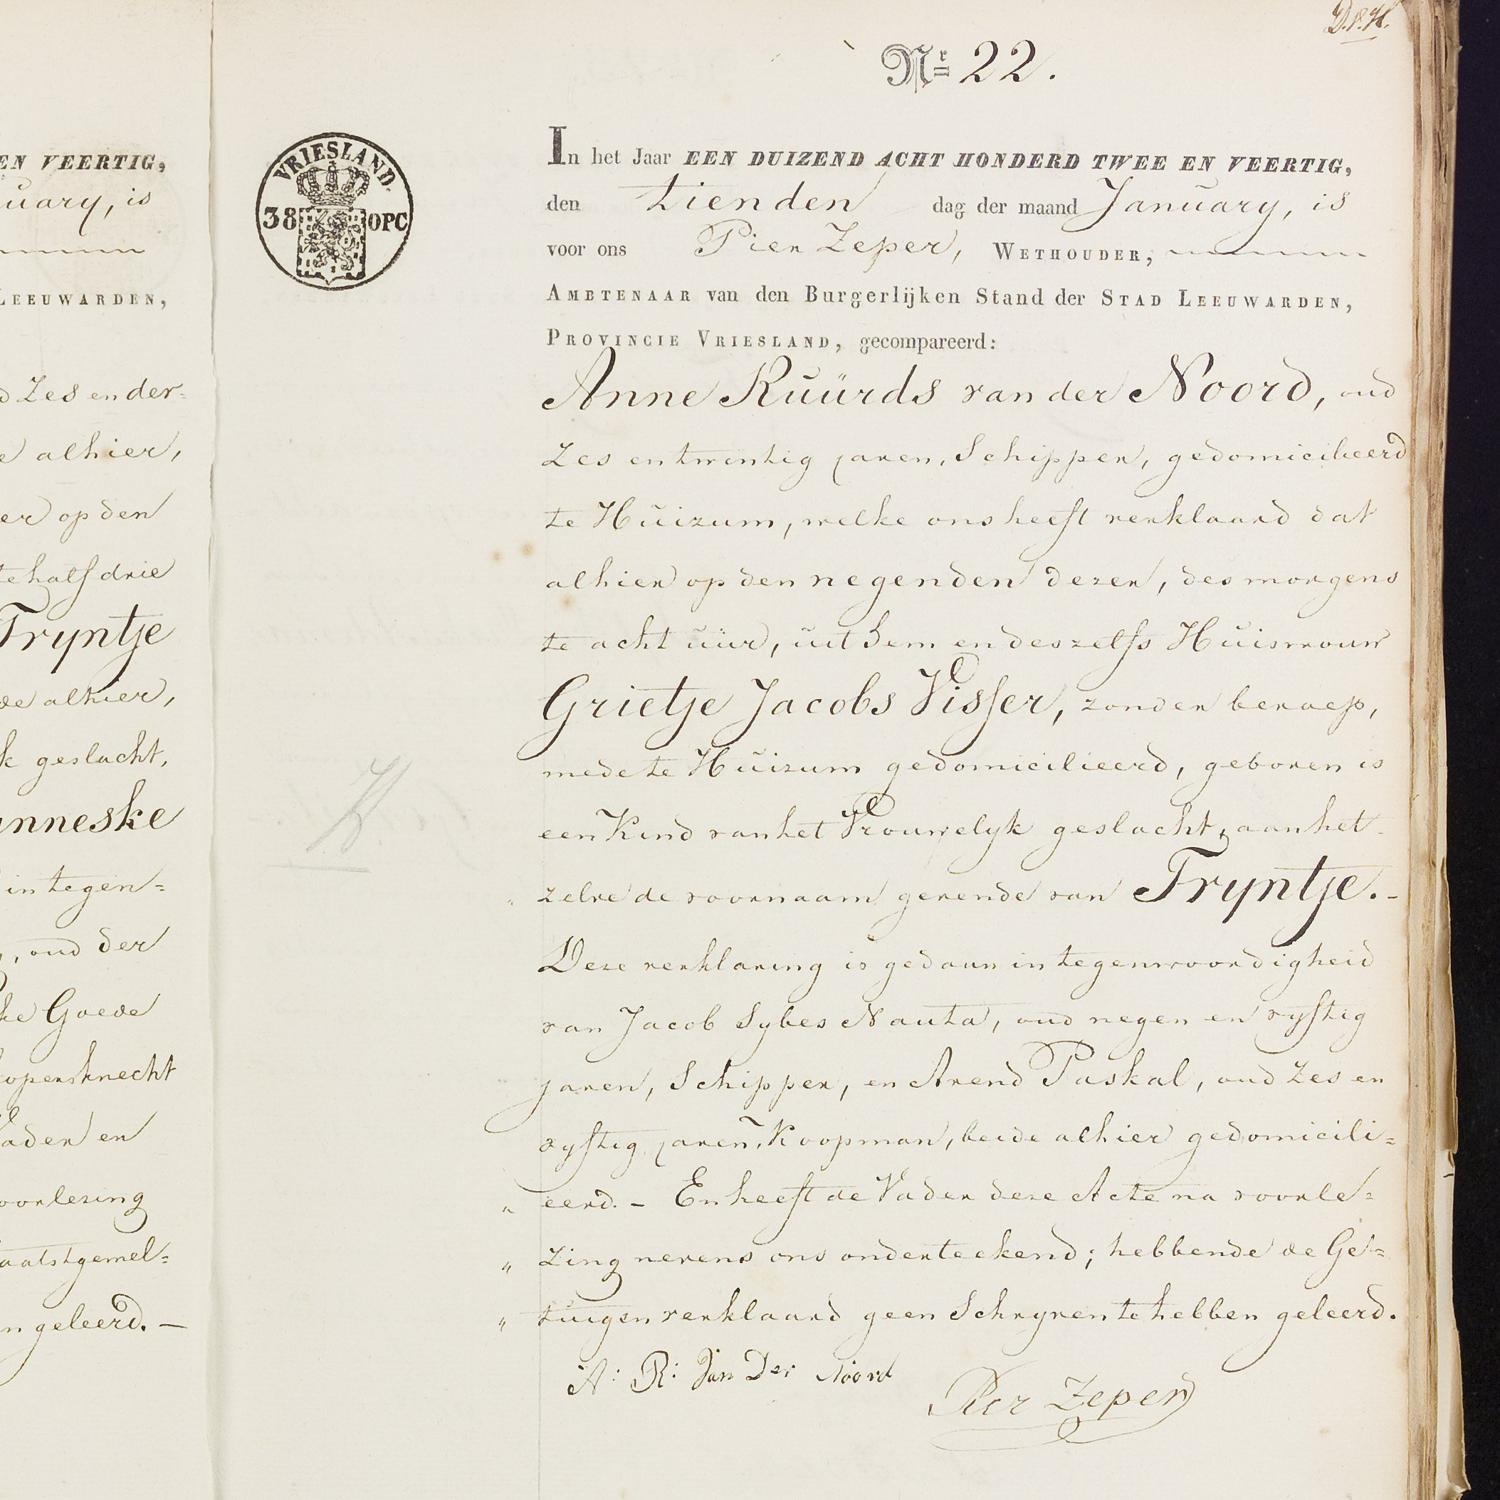 Nr 22.
VRIESLAND.
38 OPC
In het Jaar EEN DUIZEND ACHT HONDERD TWEE EN VEERTIG,
den tienden dag der maand January, is
voor ons Pier Zeper, WETHOUDER,
AMBTENAAR van den Burgerlijken Stand der STAD LEEUWARDEN,
PROVINCIE VRIESLAND, gecompareerd:
Anne Ruurds van der Noord, oud
zes en twintig jaren, Schipper, gedomicilieerd
te Huizum, welke ons heeft verklaard dat
alhier op den negenden dezer, des morgens
te acht uur, uit hem en deszelfs Huisvrouw
Grietje Jacobs Visser, zonder beroep,
mede te Huizum gedomicilieerd, geboren is
een Kind van het Vrouwelyk geslacht, aan het
zelve de voornaam gevende van Tryntje.-
Deze verklaring is gedaan in tegenwoordigheid
van Jacob Sybes Nauta, oud negen en vyftig
jaren, Schipper, en Arend Paskal, oud zes en
vyftig jaren, Koopman, beide alhier gedomicili=
" eerd. - En heeft de Vader deze Acte na voorle=
" zing nevens ons onderteekend; hebbende de Ge=
" tuigen verklaard geen Schryven te hebben geleerd.
A: R: Van Der Noord
Pier Zeper
EN VEERTIG,
uary, is
LEEUWARDEN,
zes en der=
alhier,
er op den
te half drie
Tryntje
de alhier,
k geslacht,
anneske
in tegen=
, oud der
ke Goede
kopersknecht
Vader en
voorlezing
laatstgemel=
n geleerd. -